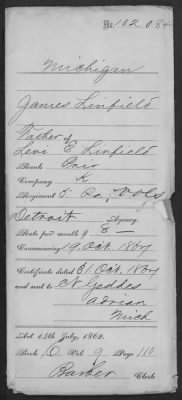 No. 102.084
Michigan
James Linfield
Father of
Levi E Linfield
Rank Priv
Company K
Regiment 5" Vols
Detroit Agency
Rate per month $ 8 —
Commencing 19, Oct. 1864
Certificate dated 31 Oct. 1864
and sent to N Geddes
Adrian
Mich
Act 14th July, 1862.
Book O Vol. 9 Page 110
Barber Clerk